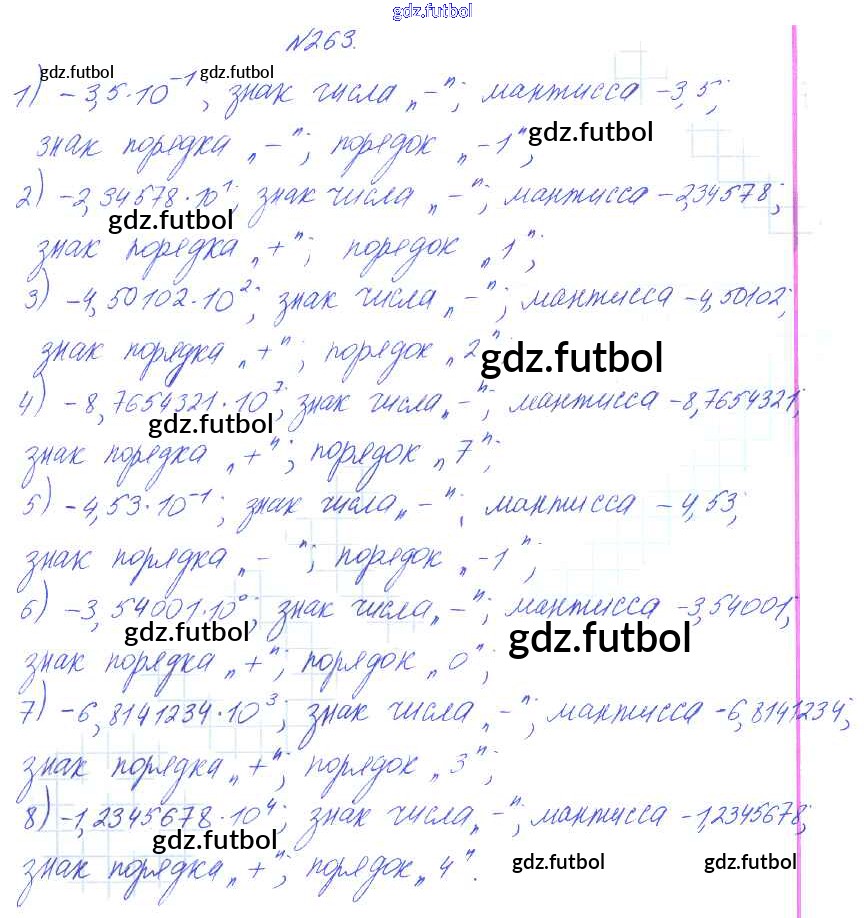 gdz.futbol
№263.
gdz.futbol gdz.futbol
1) -3,5·10⁻¹, знак числа „-"; мантисса -3,5;
знак порядка „-"; порядок „-1";
gdz.futbol
2) -2,34578·10¹; знак числа „-"; мантисса -2,34578;
gdz.futbol
знак порядка „+"; порядок „1";
3) -4,50102·10²; знак числа „-"; мантисса -4,50102;
знак порядка „+"; порядок „2"
gdz.futbol
4) -8,7654321·10⁷; знак числа „-"; мантисса -8,7654321;
gdz.futbol
знак порядка „+"; порядок „7";
5) -4,53·10⁻¹; знак числа „-"; мантисса -4,53;
знак порядка „-"; порядок „-1";
6) -3,54001·10⁰; знак числа „-"; мантисса -3,54001;
gdz.futbol gdz.futbol
знак порядка „+"; порядок „0";
7) -6,8141234·10³; знак числа „-"; мантисса -6,8141234;
знак порядка „+"; порядок „3";
8) -1,2345678·10⁴; знак числа „-"; мантисса -1,2345678;
gdz.futbol
знак порядка „+"; порядок „4".
gdz.futbol gdz.futbol